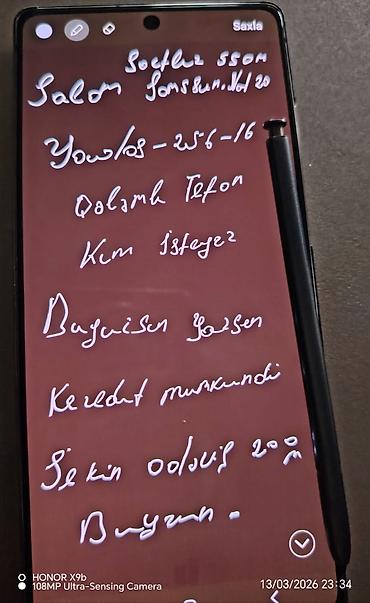 Saxla
Soetlez 550m
Salam Samssun. Not 20
Yaw/os - 256 - 16
Qələmli Telfon
Kim isteyer
Buyursun yazsen
Kredit munkundi
İlkin odəniş 200 m
Buyrun.
HONOR X9b
108MP Ultra-Sensing Camera
13/03/2026 23:34